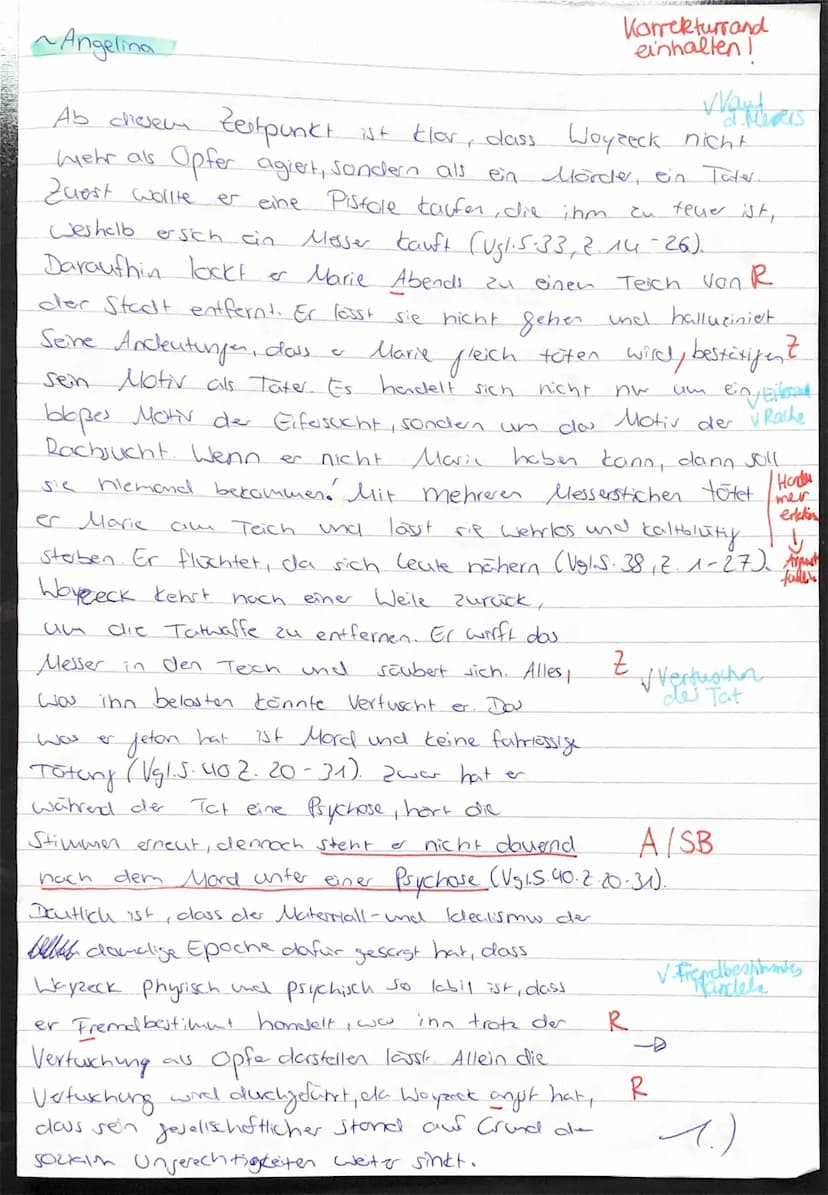 ~Angelina
Korrekturrand
einhalten!
Ab diesem Zeitpunkt ist klar, dass Woyzeck nicht
√ Kauf
d. Messers
mehr als Opfer agiert, sondern als ein Mörder, ein Täter.
Zuerst wollte er eine Pistole kaufen, die ihm zu teuer ist,
weshalb er sich ein Messer kauft (Vgl. S. 33, Z. 14-26).
Daraufhin lockt er Marie Abends zu einen Teich von R
der Stadt entfernt. Er lässt sie nicht gehen und halluziniert.
Seine Andeutungen, dass er Marie gleich töten wird, bestätigen Z
sein Motiv als Täter. Es handelt sich nicht nur um ein
bloßes Motiv der Eifersucht, sondern um das Motiv der √ Rache
Rachsucht. Wenn er nicht Marie haben kann, dann soll
sie niemand bekommen! Mit mehreren Messerstichen tötet
er Marie am Teich und lässt sie wehrlos und kaltblütig
sterben. Er flüchtet, da sich Leute nähern (Vgl. S. 38, Z. 1-27).
Woyzeck kehrt nach einer Weile zurück,
um die Tatwaffe zu entfernen. Er wirft das
Messer in den Teich und säubert sich. Alles, Z
√ Vertuschn
der Tat
was ihn belasten könnte vertuscht er. Das
was er getan hat ist Mord und keine fahrlässige
Tötung (Vgl. S. 40 Z. 20-31). Zwar hat er
während der Tat eine Psychose, hört die
Stimmen erneut, dennoch steht er nicht dauernd A/SB
nach dem Mord unter einer Psychose (Vgl. S. 40. Z. 20-31).
Deutlich ist, dass der Materiall- und Idealismus der
damalige Epoche dafür gesorgt hat, dass
Woyzeck physisch und psychisch so labil ist, dass
√ Fremdbestimmtes
Handeln
er Fremdbestimmt handelt, was ihn trotz der R
Vertuschung als Opfer darstellen lässt. Allein die
Vertuschung wird durchgeführt, da Woyzeck angst hat, R
dass sein gesellschaftlicher Stand auf Grund der
sozialen Ungerechtigkeiten weiter sinkt.
1.)